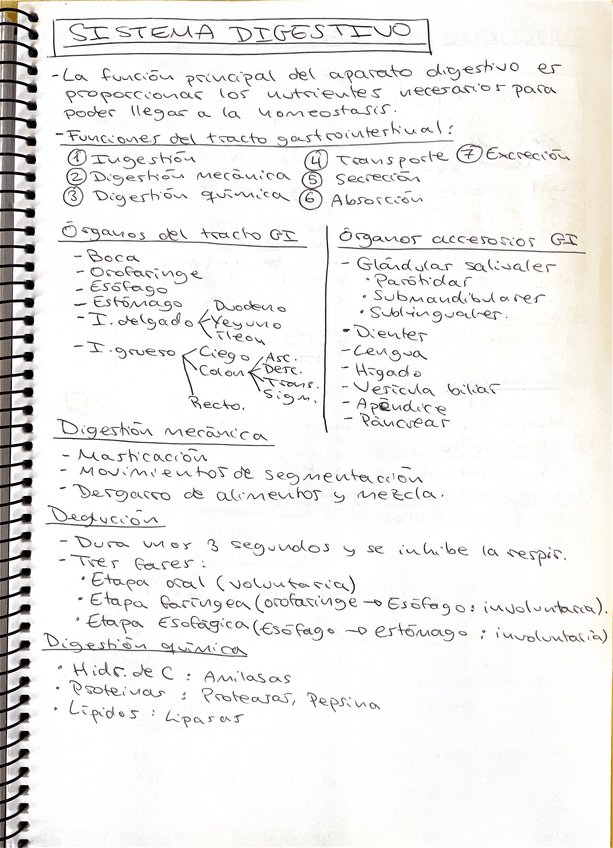 SISTEMA DIGESTIVO
- La función principal del aparato digestivo es
proporcionar los nutrientes necesarios para
poder llegar a la homeostasis.
- Funciones del tracto gastrointestinal:
① Ingestión ④ Transporte ⑦ Excreción
② Digestión mecánica ⑤ Secreción
③ Digestión química ⑥ Absorción
Órganos del tracto GI
- Boca
- Orofaringe
- Esófago
- Estómago
- I. delgado Duodeno
Yeyuno
Íleon
- I. grueso Ciego
Colon Asc.
Desc.
Trans.
Sigm.
Recto.
Órganos accesorios GI
- Glándulas salivales
• Parótidas
• Submandibulares
• Sublinguales.
- Dientes
- Lengua
- Hígado
- Vesícula biliar
- Apéndice
- Páncreas
Digestión mecánica
- Masticación
- Movimientos de segmentación
- Desgarro de alimentos y mezcla.
Deglución
- Dura unos 3 segundos y se inhibe la respir.
- Tres fases:
• Etapa oral (voluntaria)
• Etapa faríngea (orofaringe → Esófago: involuntaria).
• Etapa Esofágica (Esófago → estómago: involuntaria)
Digestión química
• Hidr. de C: Amilasas
• Proteínas: Proteasas, Pepsina
• Lípidos: Lipasas